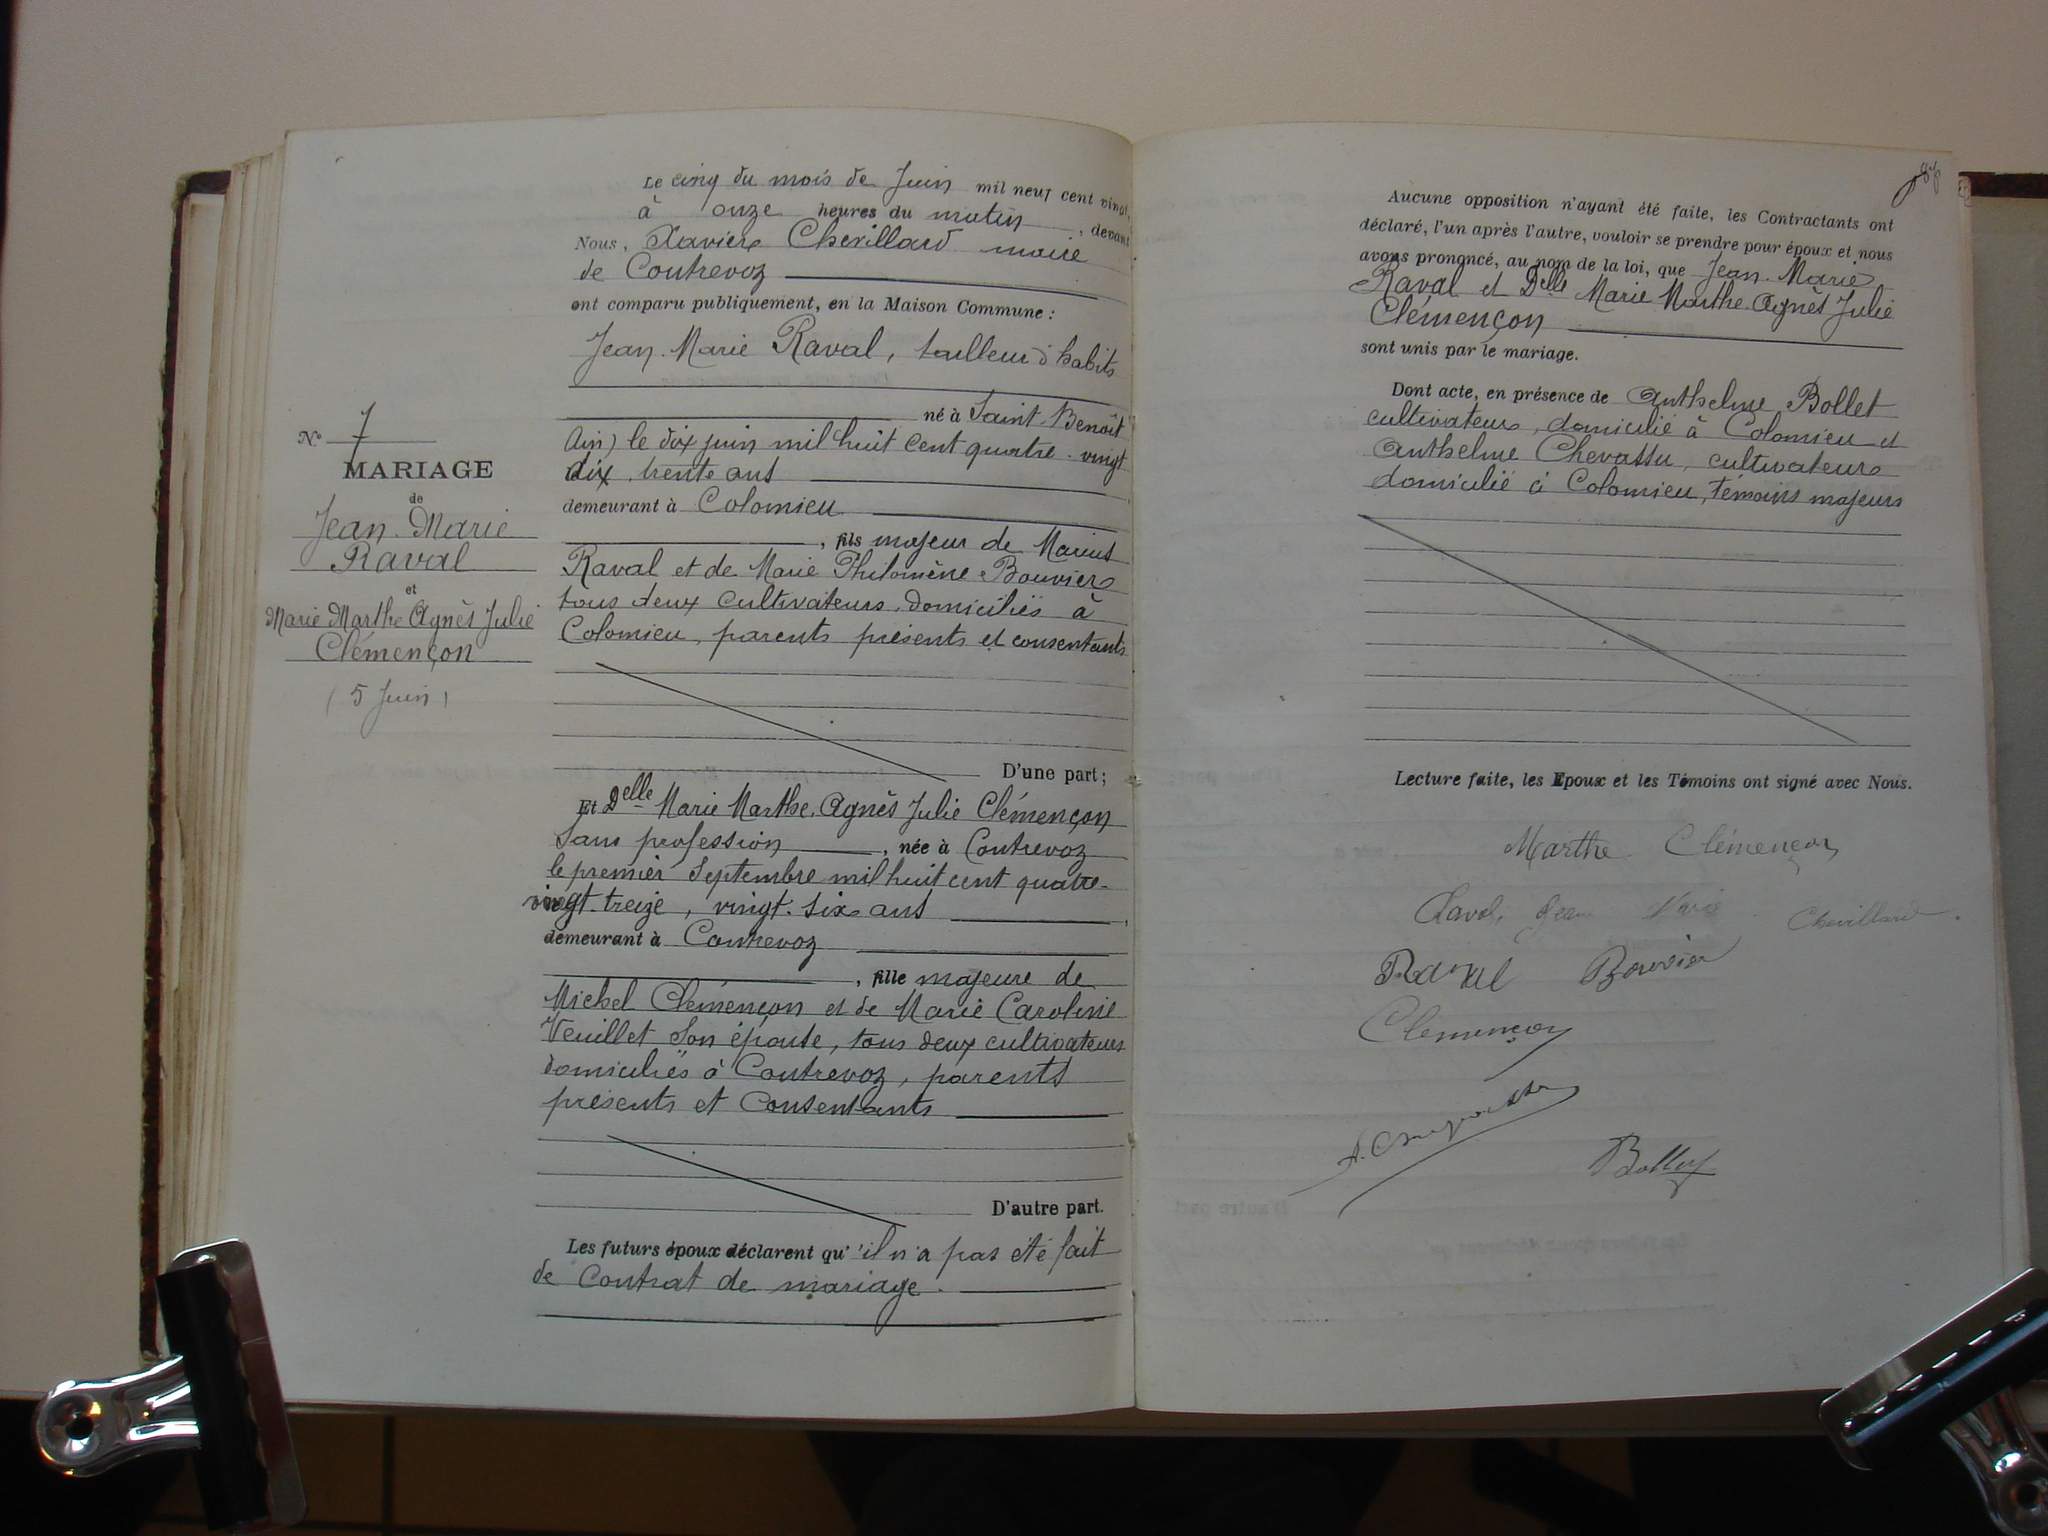 N° 7
MARIAGE
de
Jean-Marie
Raval
et
Marie Marthe Agnès Julie
Clémençon
(5 Juin)
Le cinq du mois de Juin mil neuf cent vingt,
à onze heures du matin, devant
Nous, Xavier Chevillard maire
de Contrevoz
ont comparu publiquement, en la Maison Commune :
Jean-Marie Raval, tailleur d'habits
né à Saint-Benoît
Ain) le dix juin mil huit cent quatre-vingt
dix, trente ans
demeurant à Colomieu
, fils majeur de Marius
Raval et de Marie Philomène Bouvier
tous deux cultivateurs domiciliés à
Colomieu, parents présents et consentants
D'une part ;
Et Delle Marie Marthe Agnès Julie Clémençon
Sans profession, née à Contrevoz
le premier Septembre mil huit cent quatre-
vingt-treize, vingt-six ans
demeurant à Contrevoz
, fille majeure de
Michel Clémençon et de Marie Caroline
Veuillet son épouse, tous deux cultivateurs
domiciliés à Contrevoz, parents
présents et consentants
D'autre part.
Les futurs époux déclarent qu'il n'a pas été fait
de Contrat de mariage.
Aucune opposition n'ayant été faite, les Contractants ont
déclaré, l'un après l'autre, vouloir se prendre pour époux et nous
avons prononcé, au nom de la loi, que Jean-Marie
Raval et Delle Marie Marthe Agnès Julie
Clémençon
sont unis par le mariage.
Dont acte, en présence de Anthelme Bollet
cultivateur, domicilié à Colomieu et
Anthelme Chevassu, cultivateur
domicilié à Colomieu, témoins majeurs
Lecture faite, les Epoux et les Témoins ont signé avec Nous.
Marthe Clémençon
Raval Jean Marie Chevillard
Raval Bouvier
Clemençon
Bollet